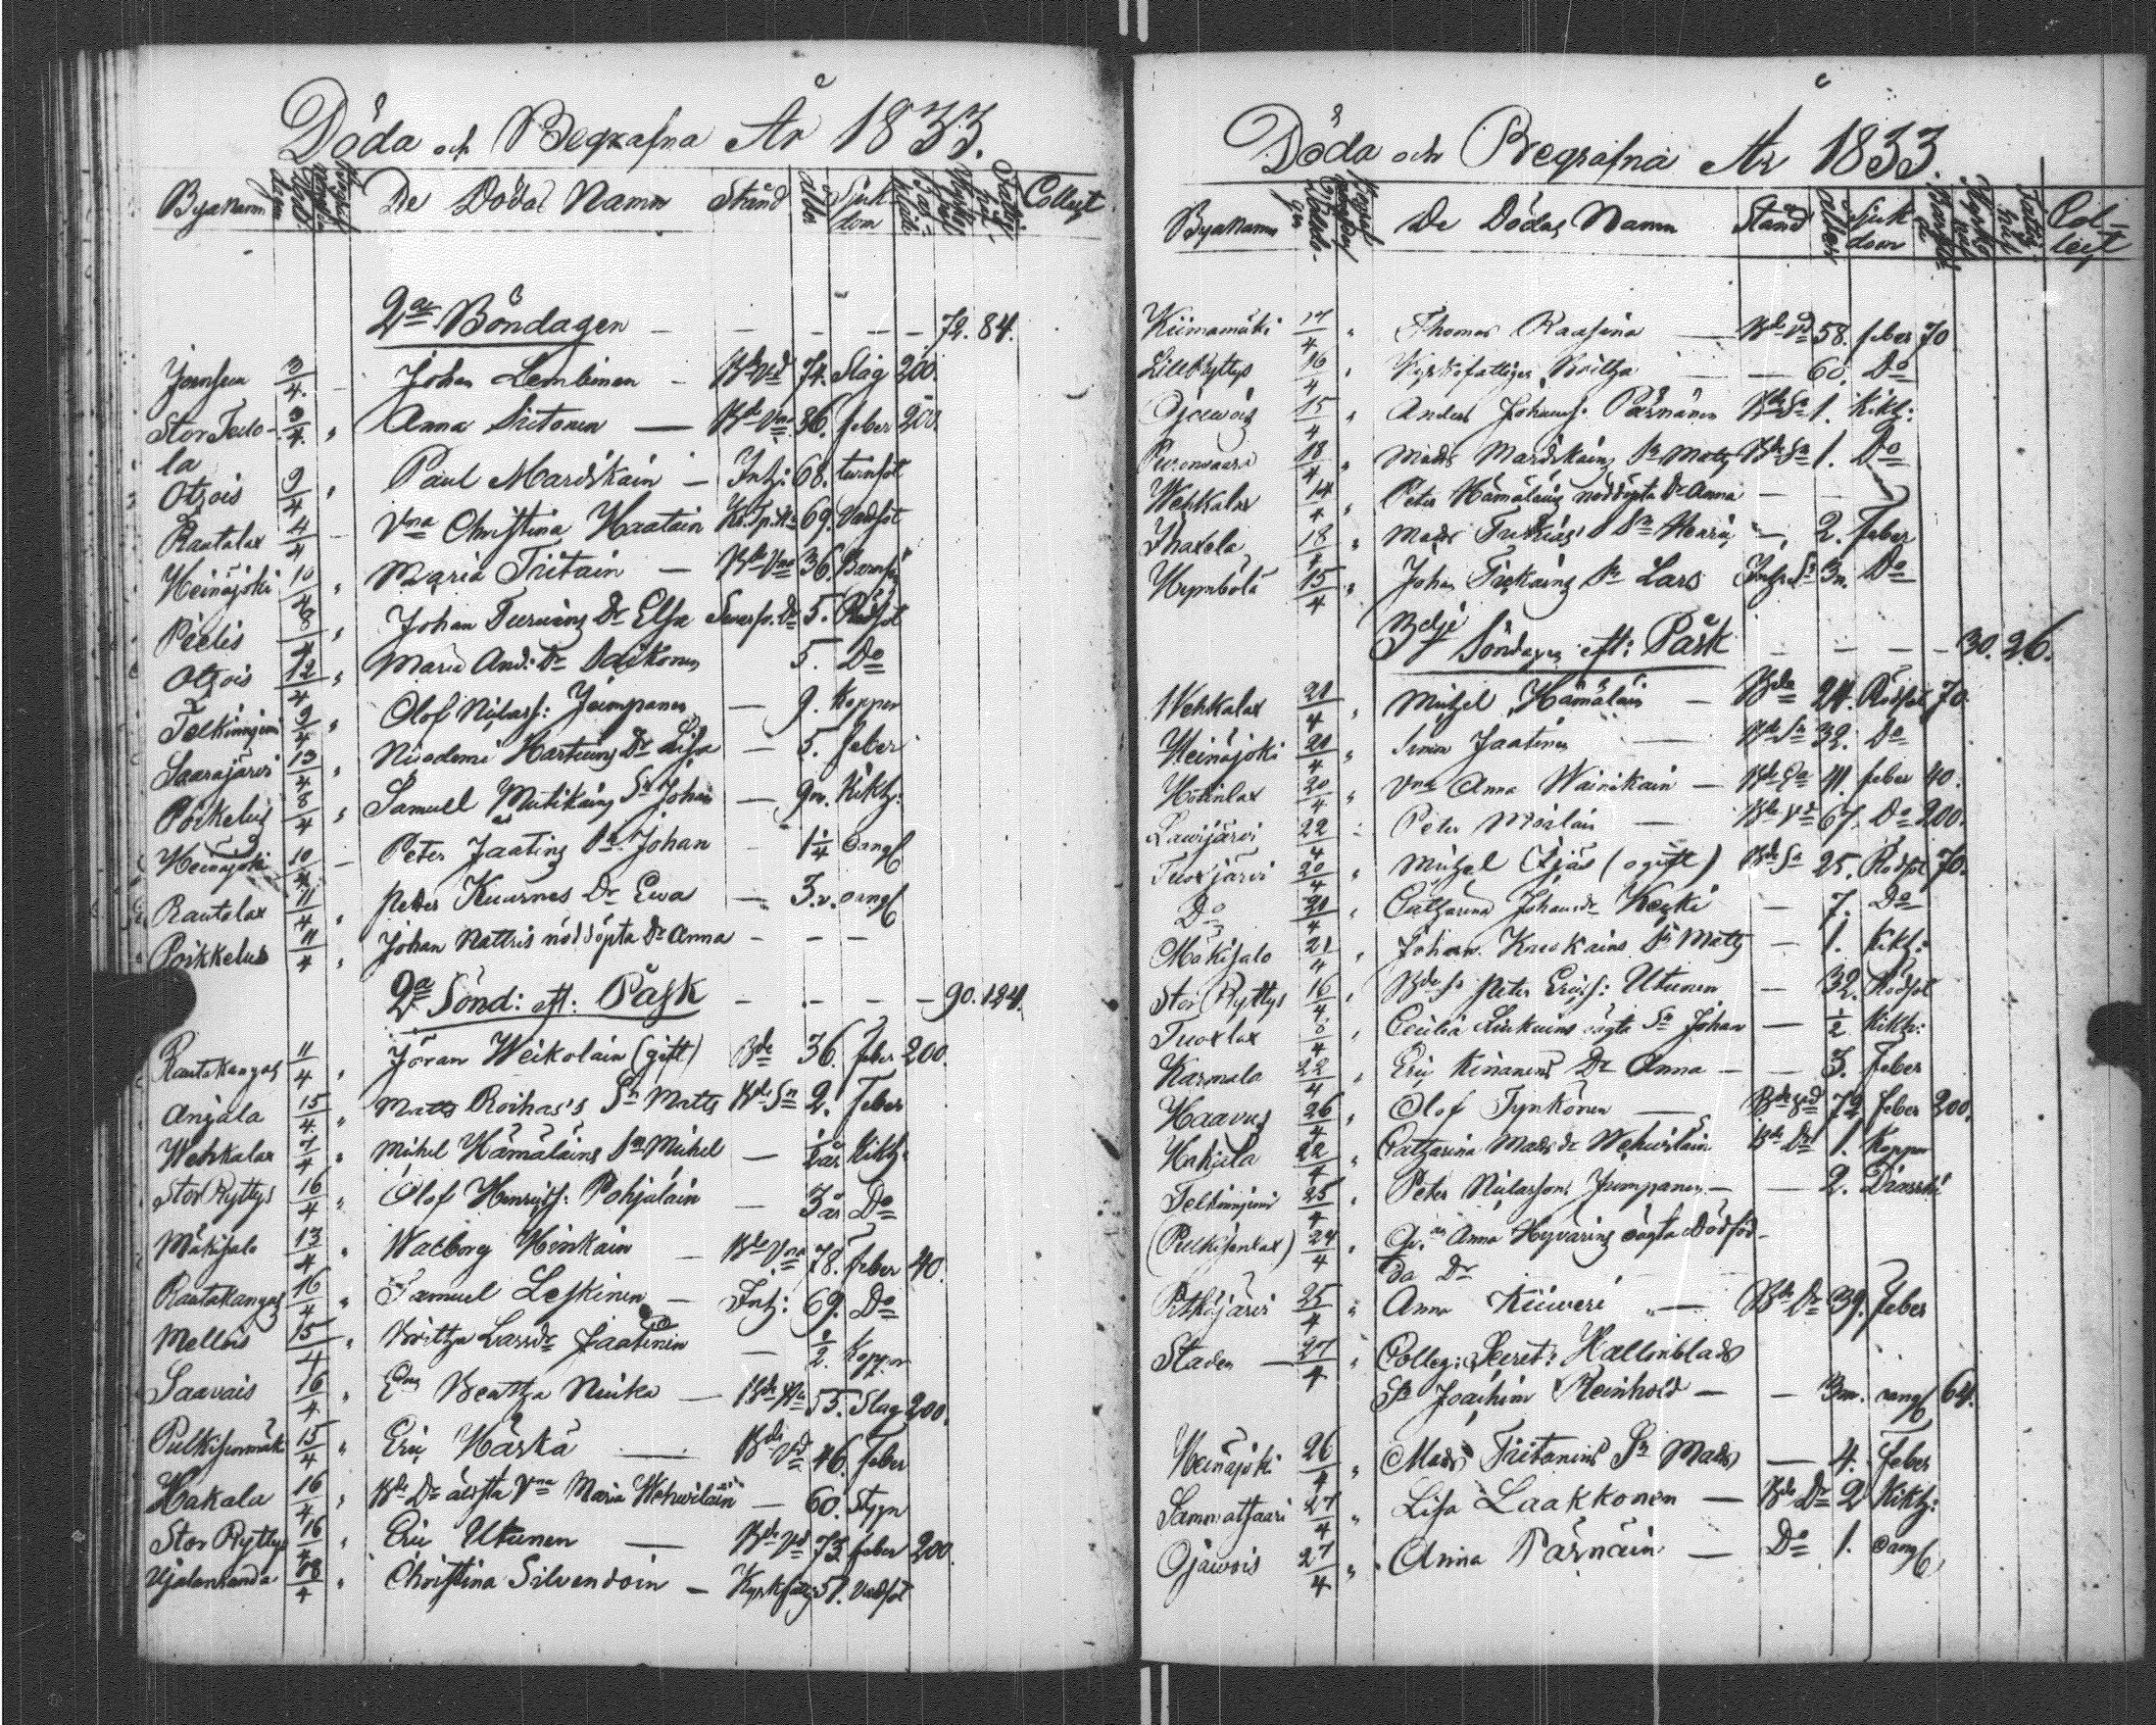 Döda och Begrafna År 1833.
Byanamn De Dödas Namn Stånd ålder Sjuk-dom Collect
2a Böndagen - - - - - 72. 84.
Joensuu 3/4. - Johan Lembinen - 74. Slag 200.
Stor Tulo-la 3/4. " Anna Siitonen — Bde Vna 86. feber 200.
Otrois 9/4 " Paul Mardikain - Inh: 68. lunsot
Rautalax 4/4 - Vna Christina Haatain 69. Vadsot
Heinäjoki 10/4 " Maria Tiitain - Bde Vna 36. Barns
Peelis 8/4 " Johan Dr Elsa 5. Rödsot
Otrois 12/4 " Maria And: Dr Saikonen 5. Do
Telkinnjemi 9/4 " Olof Nilass: Jumpanen — 9. Koppor
Saarajärvi 13/4 " Nicodemi Dr Lisa — 5. feber
Poikelus 8/4 " Samuel Mutikains Sn Johan — 9m. Kikh:
Heinäjoki 10/4 - Peter Jaatins Sn Johan - 1 1/4 oangf
Rautalax 11/4 " Peter Kuurnes Dr Ewa — 3.v. oangf
Poikkelus 11/4 " Johan Nattris nöddöpta Dr Anna - - -
2a Sönd: eft: Påsk - - - - 90. 124.
Rautakangas 11/4 " Jöran Weikolain (gift) Bde 36. feber 200.
Anjala 15/4. " Matts Roihas's Sn Matts Bde Sn 2. feber
Wehkalax 7/4 " Michel Hämäläins Sn Michel — 1/2 år Kikh:
Stor Ryttys 16/4 " Olof Henrikss: Pohjalain — 3 år Do
Mäkisalo 13/4 " Walborg Hinkain - Bde Vna 78. feber 40.
Rautakangas 16/4 " Samuel Leskinen - Inh: 69. Do
Mellois 15/4 " Britha Larsdr Jaatinen — 1/2. Koppor
Saavais 16/4 " Beatha Nuika — 55. Slag 200.
Pulkisenmäki 15/4 " Eric Härkä — Bde 46. feber
Hakala 16/4 " Bde Dr Vna Maria Wehwiläin — 60. Styn
Stor Ryttys 16/4 " Eric Utunen — Bde 73. feber 200.
Ujalanranda 18/4 " Christina Silvendoin - Kyrkfattig 51. Vadsot
Döda och Begrafna År 1833.
Byanamn De Dödas Namn Stånd ålder Sjuk dom Col-lect
Kiimamäki 14/4 " Thomas Raasina — 58. feber 70
Lill Ryttys 16/4 " Kyrkofattiga Britha — 60. Do
Ojawois 15/4 " Anders Johanss: Pärnänen Bde Sn 1. Kikh:
Puronvaara 18/4 " Mads Mardikains Sn Matts Bde Sn 1. Do
Wehkalax 14/4 " Peter Hämäläins nöddöpta Dr Anna —
Ihaxela 18/4 " Mads Sn Henric — 2. feber
Hymbölä 15/4 " Johan Tiekains Sn Lars Inh. Sn 3m. Do
Söndagen eft: Påsk - - - - 30. 26.
Wehkalax 21/4 " Michel Hämäläin — Bde 24. Rödsot 70.
Heinäjoki 21/4 " Simon Jaatinen — Bde Sn 32. Do
Hötinlax 20/4 " Vna Anna Wainikain — 41. feber 40.
Lawijärvi 22/4 : Peter Moilain — 67. Do 200.
Tuoxjärvi 20/4 " Michel Ojäs (ogift) Bde Sn 25. Rödsot 70.
Do 21/4 " Catharina Johansdr Keski — 7. Do
Mäkisalo 21/4 " Johan Sn Matts — 1. Kikh:
Stor Ryttys 16/4 " Bde Sn Peter Ericss: Utunen — 32. Rödsot
Tuoxlax 8/4 " Cecilia Liukuins oägta Sn Johan — 1/2 Kikh:
Karmala 22/4 " Eric Kinanens Dr Anna — — 3. feber
Haavus 26/4 " Olof Tynkönen — 72 feber 200.
Hakjala 22/4 " Catharina Mads dr Wehwiläin Bde Dr 1. Koppor
Telkinnjemi 25/4 " Peter Nilassons Jumpanen — — 2.
(Pulkisenlax) 24/4 " Anna Hyvärins oägta dödföd-da Dr
Pitkäjärvi 25/4 " Anna Kiiweri — Bde Dr 39. feber
Staden — 27/4 " Colleg: Secret: Hallinblads
Sn Joachim Reinhold — — 3m. oangf 64.
Heinäjoki 26/4 " Mads Tiitanens Sn Mads — 4. feber
Sammatsaari 27/4 " Lisa Laakkonen — Bde Dr 2 Kikh:
Ojawois 27/4 " Anna Pärnäin — Do 1. oangf